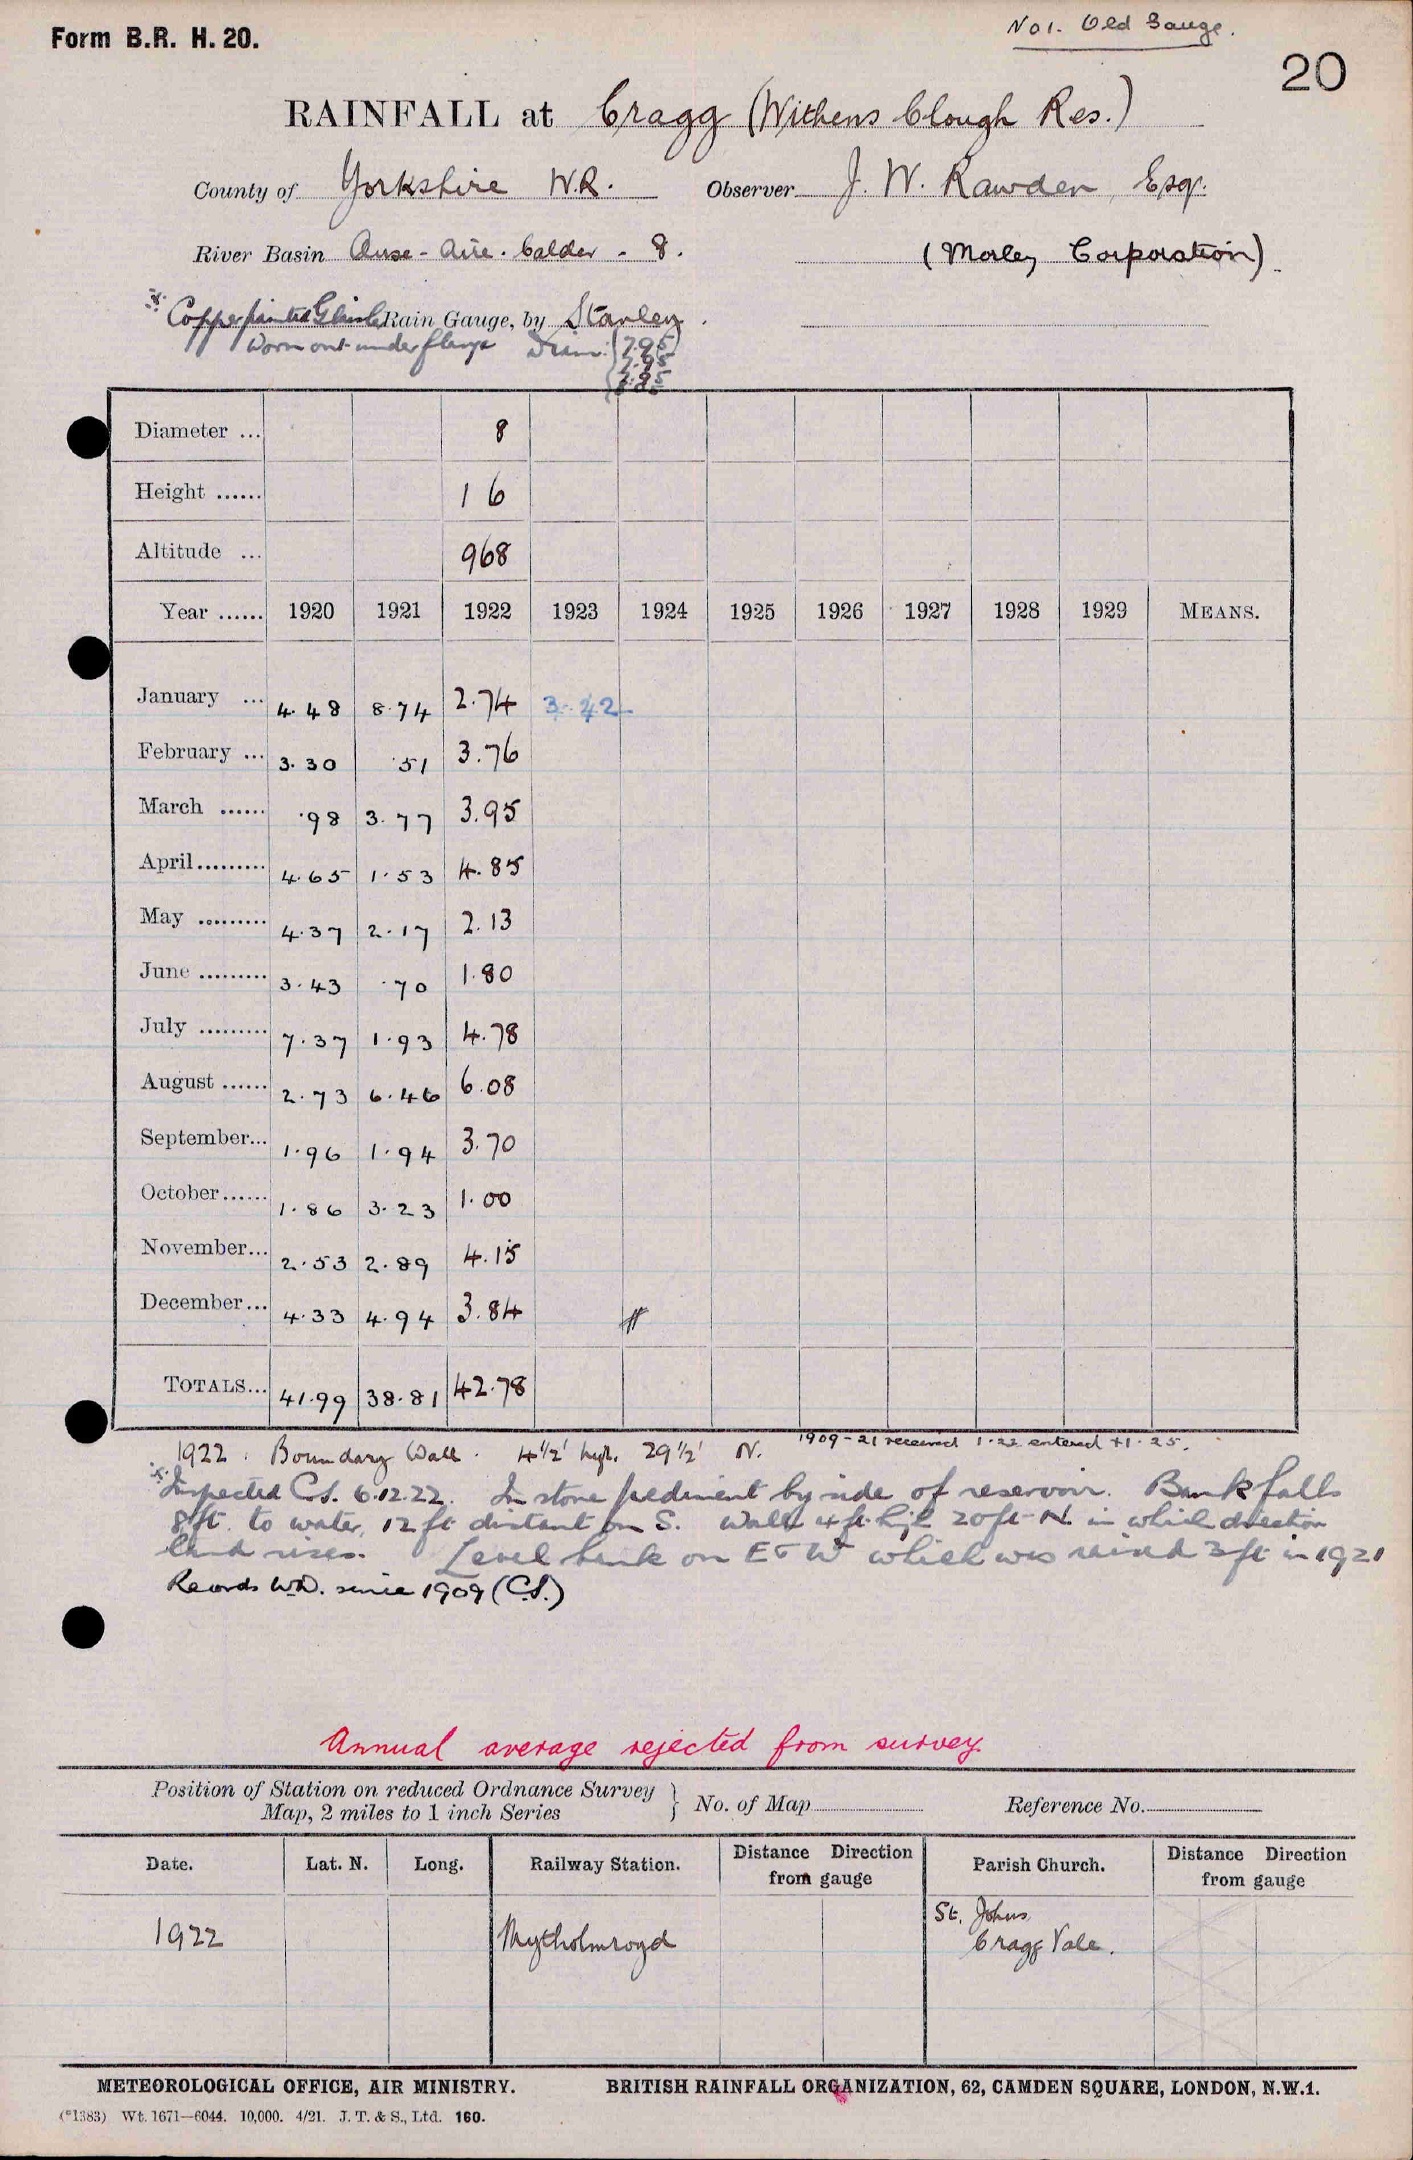 No 1. Old Gauge.
Form B.R. H. 20.
20
RAINFALL at Cragg (Withens Clough Res.)
County of Yorkshire W.R. Observer J. W. Rawden, Esq.
River Basin Ouse - Aire. Calder - 8. (Morley Corporation)
Copper painted Rain Gauge, by Stanley.
Worn out under flange Diam: (7.95
7.95
7.95
Diameter ... 8
Height ...... 1 6
Altitude ... 968
Year ...... 1920 1921 1922 1923 1924 1925 1926 1927 1928 1929 MEANS.
January ... 4.48 8.74 2.74 3.42
February ... 3.30 .51 3.76
March ...... .98 3.77 3.95
April......... 4.65 1.53 4.85
May ......... 4.37 2.17 2.13
June ......... 3.43 .70 1.80
July ......... 7.37 1.93 4.78
August ...... 2.73 6.46 6.08
September... 1.96 1.94 3.70
October...... 1.86 3.23 1.00
November... 2.53 2.89 4.15
December... 4.33 4.94 3.84
TOTALS... 41.99 38.81 42.78
1922. Boundary Wall. 4½' high. 29½' N. 1909-21 received 1.22 entered 1.25.
Inspected C.S. 6.12.22. In stone pediment by side of reservoir. Bank falls
8ft. to water, 12 ft distant on S. Wall 4 ft high 20ft N. in which direction
land rises. Level bank on E & W which was raised 3ft in 1921
Records W.D. since 1909 (C.S.)
Annual average rejected from survey.
Position of Station on reduced Ordnance Survey
Map, 2 miles to 1 inch Series } No. of Map Reference No.
Date. Lat. N. Long. Railway Station. Distance Direction from gauge Parish Church. Distance Direction from gauge
1922 Mytholmroyd St. Johns
Cragg Vale.
METEOROLOGICAL OFFICE, AIR MINISTRY. BRITISH RAINFALL ORGANIZATION, 62, CAMDEN SQUARE, LONDON, N.W.1.
(*1383) Wt. 1671—6044. 10,000. 4/21. J. T. & S., Ltd. 160.